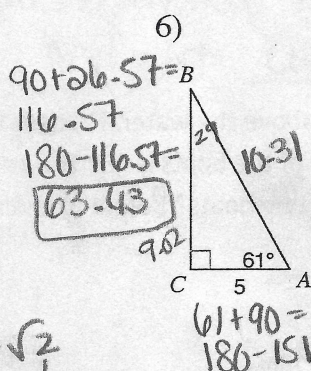 6)
90+26.57=
B
116.57
180-116.57=
63.43
29
10.31
9.02
61°
C
5
A
61+90=
180-151
√2